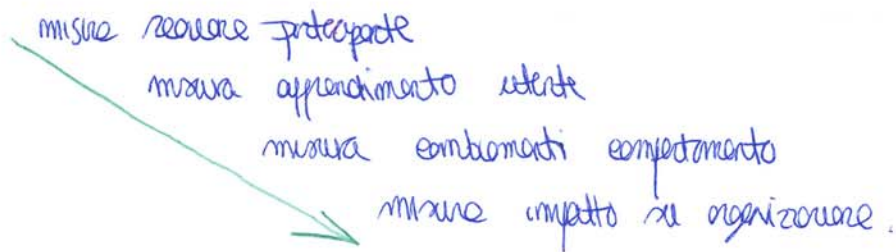 misura reazione partecipante
misura apprendimento utente
misura cambiamenti comportamento
misura impatto su organizzazione.